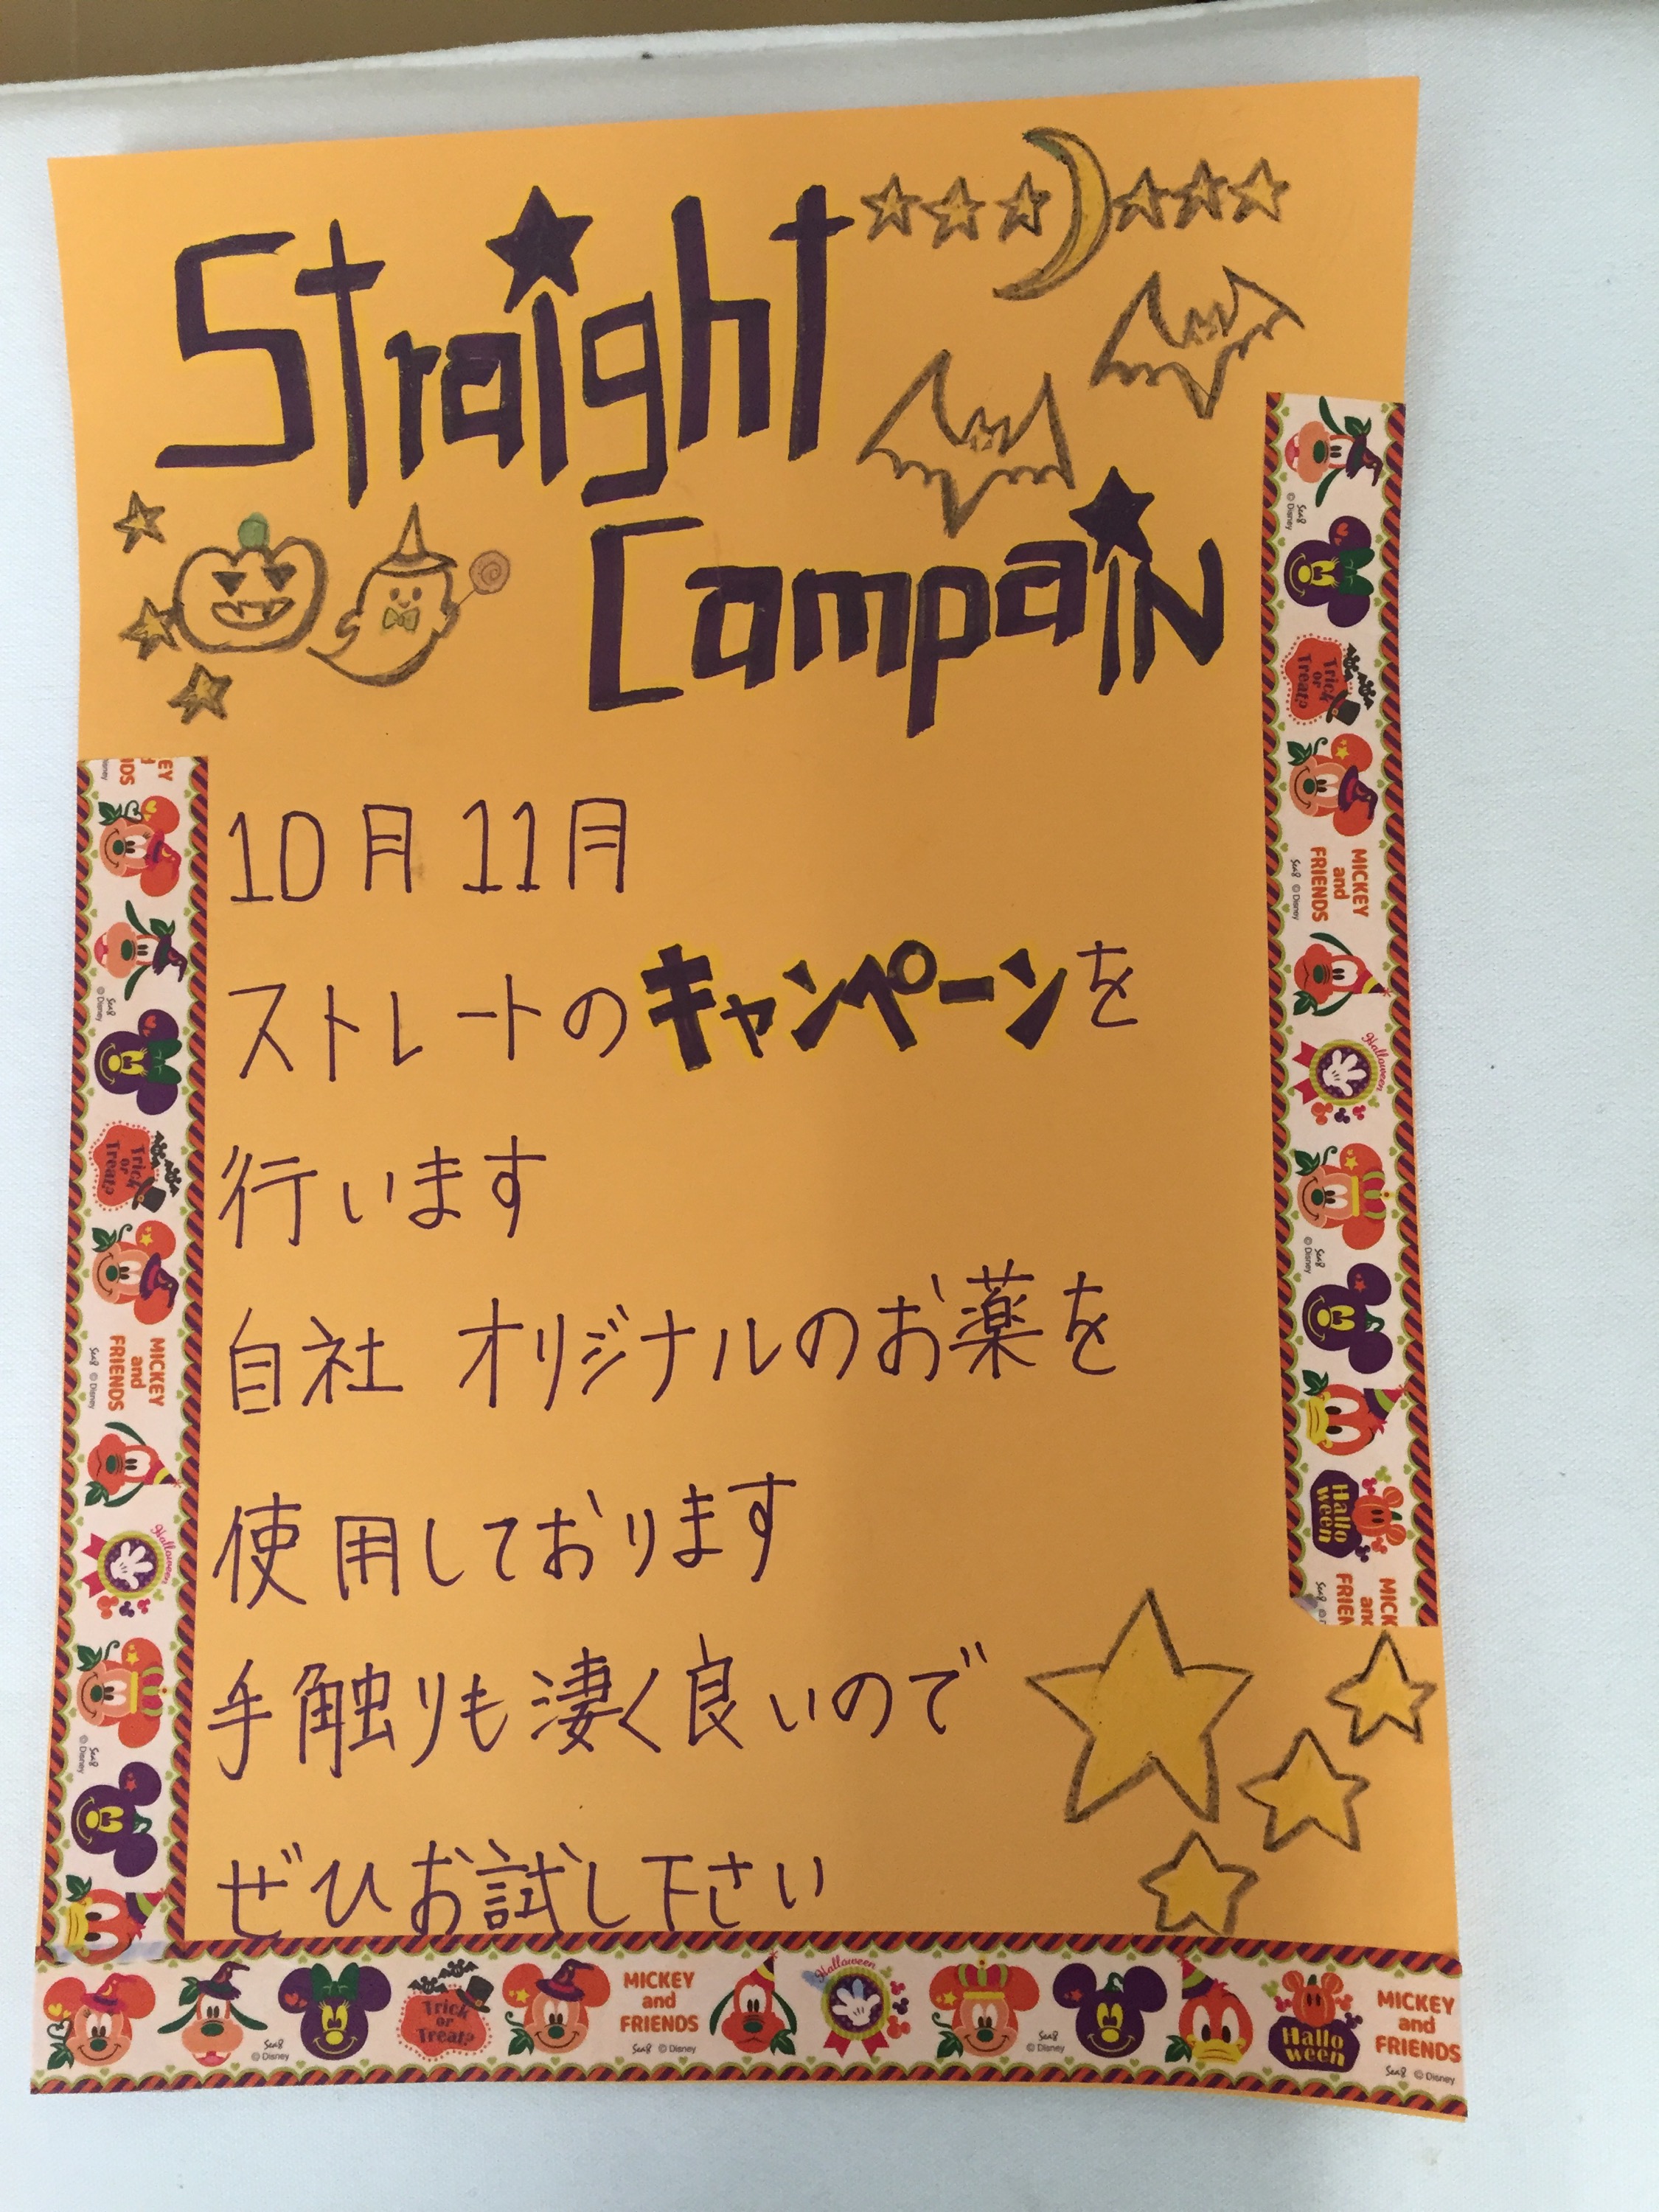 Straight
Campain
10月 11月
ストレートのキャンペーンを
行います
自社 オリジナルのお薬を
使用しております
手触りも凄く良いので
ぜひお試し下さい
Trick
or
Treat?
MICKEY
and
FRIENDS
Sea8 © Disney
Halloween
Sea8
© Disney
Hallo
ween
MICK
and
FRIEN
Trick
or
Treat?
MICKEY
and
FRIENDS
Sea8 © Disney
Halloween
Sea8
© Disney
Sea8
© Disney
Trick
or
Treat?
MICKEY
and
FRIENDS
Sea8 © Disney
Halloween
Sea8
© Disney
Hallo
ween
MICKEY
and
FRIENDS
Sea8 © Disney